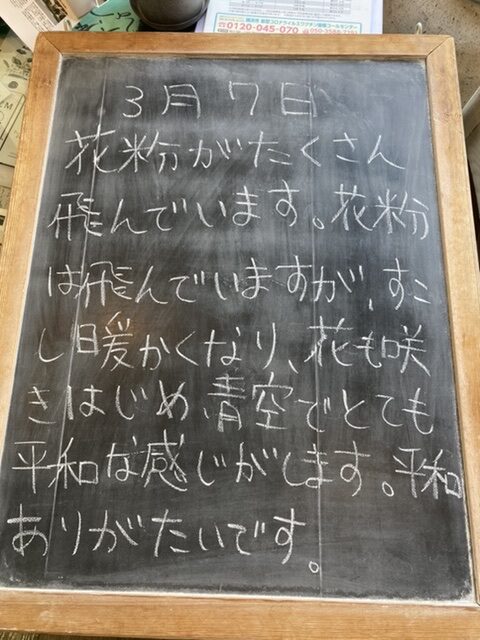 0120-045-070
3月7日
花粉がたくさん
飛んでいます。花粉
は飛んでいますが、すこ
し暖かくなり、花も咲
きはじめ青空でとても
平和な感じがします。平和
ありがたいです。